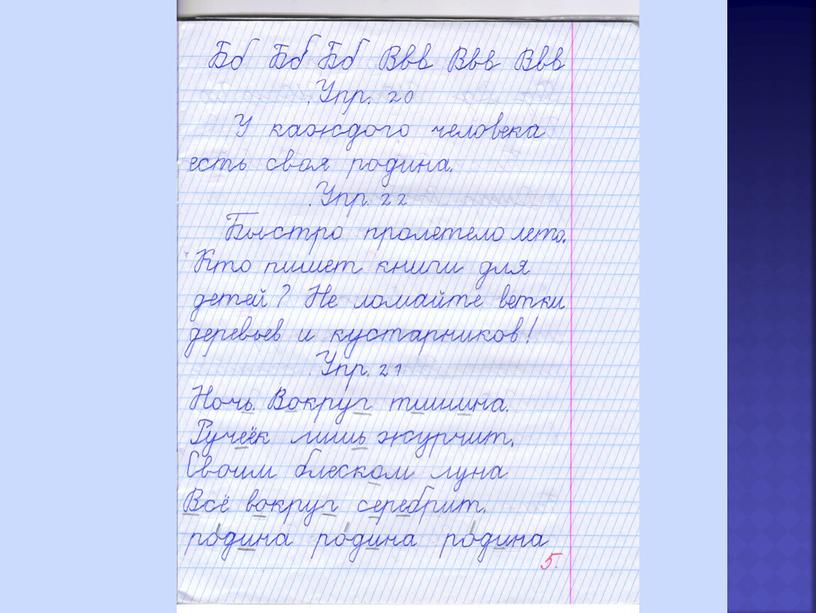 Бб Бб Бб Ввв Ввв Ввв
Упр. 20
У каждого человека
есть своя родина.
Упр. 22
Быстро пролетело лето.
Кто пишет книги для
детей? Не ломайте ветки
деревьев и кустарников!
Упр. 21
Ночь. Вокруг тишина.
Ручеёк лишь журчит.
Своим блеском луна
Всё вокруг серебрит.
ро́дина ро́дина ро́дина
5.